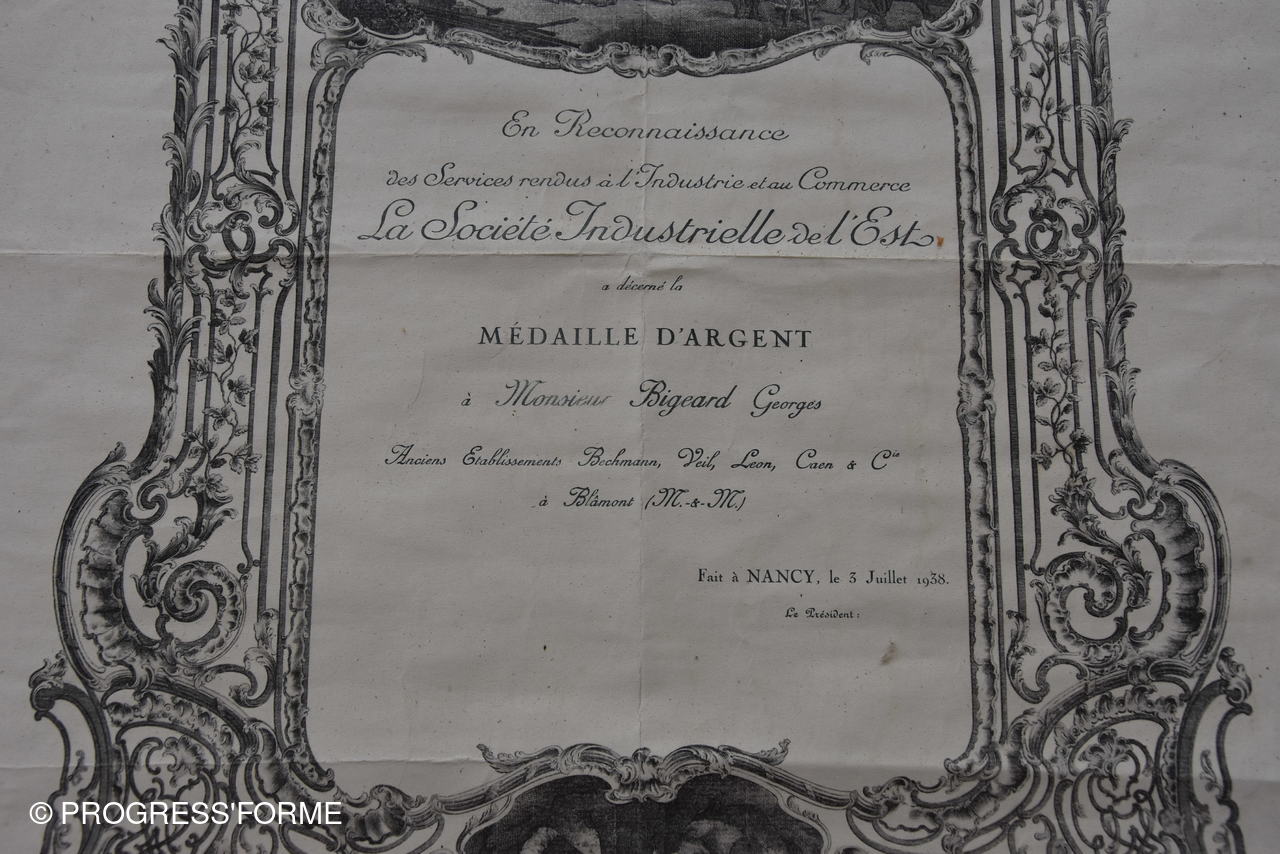 En Reconnaissance
des Services rendus à l'Industrie et au Commerce
La Société Industrielle de l'Est
a décerné la
MÉDAILLE D'ARGENT
à Monsieur Bigeard Georges
Anciens Etablissements Bechmann, Veil, Leon, Caen & Cie
à Blâmont (M.-&-M.)
Fait à NANCY, le 3 Juillet 1938.
Le Président:
© PROGRESS'FORME